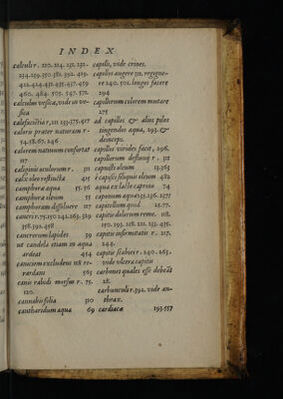 INDEX
calculi r. 120. 214. 231. 232.
234. 259. 350. 381. 392. 419.
422. 424. 431. 435. 437. 459
460. 484. 505. 547. 570.
calculum vesicæ, vide in ve-
sica
calefacientia r, 211 233. 375. 417
caloris præter naturam r.
54. 58. 67. 246
calorem naturum confortat
117
caliginis oculorum r. 311
calix aleo restincta 415
camphoræ aqua 55. 56
camphoræ oleum 55
camphoram dissoluere 117
cancri r. 75. 150 242. 263. 329
358. 392. 458
cancrorum lapides 39
ut candela etiam in aqua
ardeat 454
caniciem excludens 118 re-
tardans 565
canis rabidi morsus r. 75.
120.
cannabis folia 510
cantharidum aqua 69
capilli, vide crines.
capillos augere 70. regigne-
re 240. 502. longos facere
294
capillorum colorem mutare
275
ad capillos & alios pilos
tingendos aqua, 293. &
deinceps.
capillos virides facit, 296.
capillorum defluuij r, 512
capnistri oleum 13. 365
è capsicis siliquis oleum 482
aqua ex lacte caprino 74
caponum aqua 135. 196. 277
capitellum quid 15. 77.
capitis dolorem reme. 118.
150. 193. 218. 221. 233. 435.
capitis infirmitates r. 217.
244.
capitis scabies r. 240. 263.
vide ulcera capitis
carbones quales esse debeāt
28.
carbunculi r. 392. vide an-
thrax.
cardiacæ 193. 557